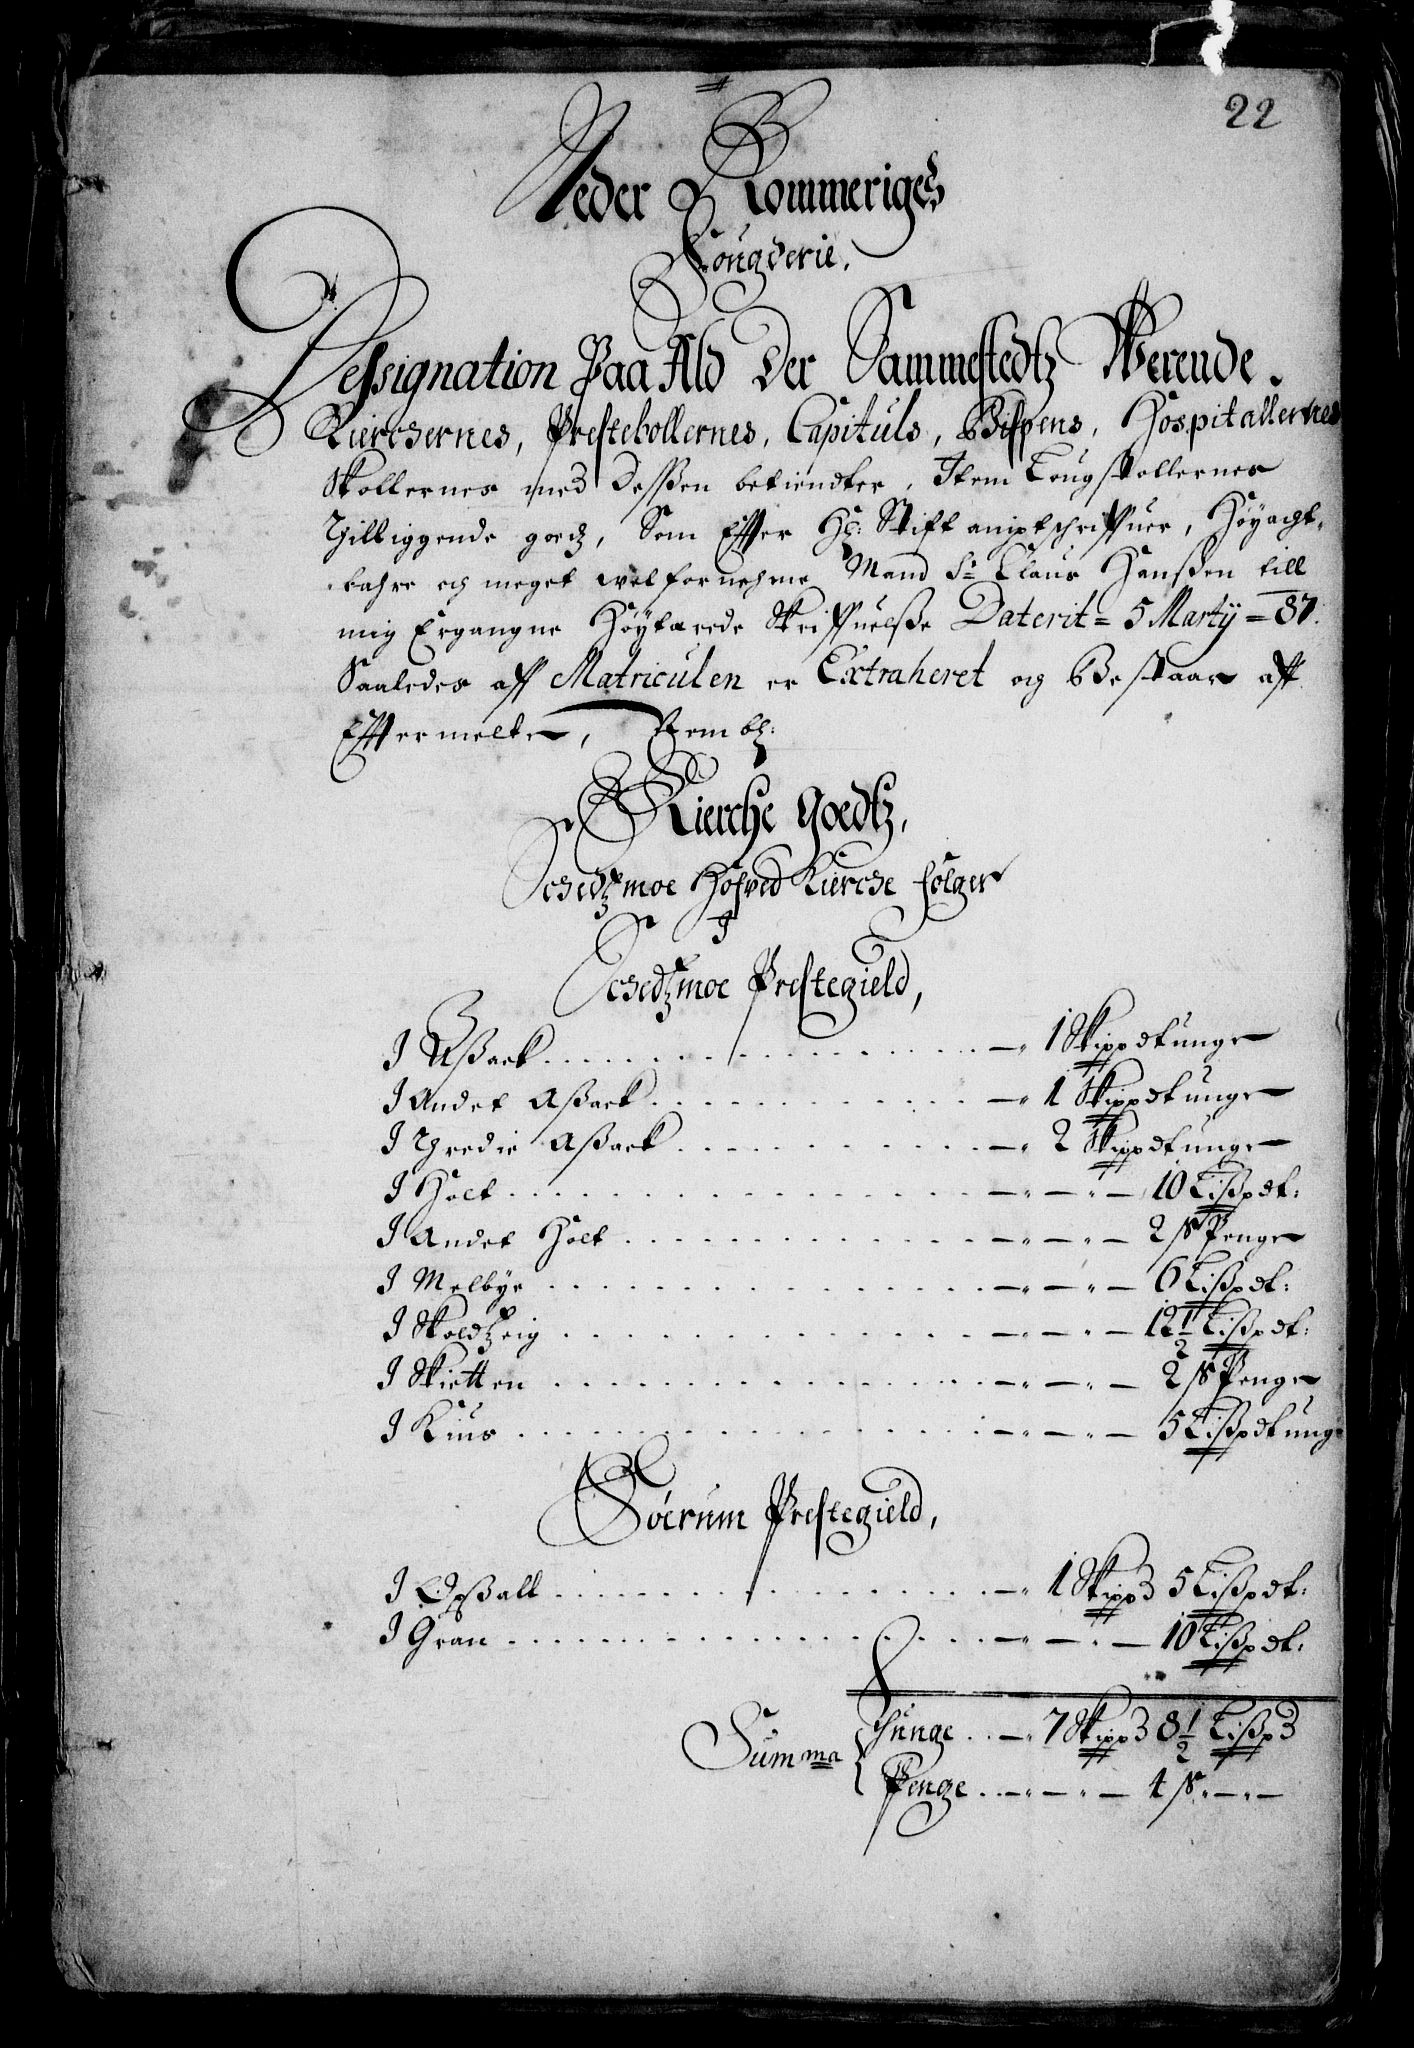 22
Neder Rommeriges
Fougderie.
Dessignation Paa Ald Der Sammestedtz Werende.
Kierchernes, Prestebollernes, Capituls, Bispens, Hospitallernes
Skollernes med Dessen betiendter, Item Laugstollernes
Tilliggende goedz, Som Effter Hr: Stiftamptschriffuer, Høyacht-
bahre och meget velfornehme Mand Sr. Claus Hanßen till
mig Ergangne Høytærede Skriffuelße Daterit = 5 Martij = 87.
Saaledes aff Matriculen er Extraheret og Bestaar aff
Efftermelte, Nembl:
Kierche Goedtz,
Schedtzmoe Hofved Kierche følger
J
Schedtzmoe Prestegield,
J Aßack . . . 1 Skippd tunge
J Andet Aßack . . . 1 Skippd tunge
J Tredie Aßack . . . 2 Skippd tunge
J Holt . . . 10 Lißpd t:
J Andet Holt . . . 2 ß Penge
J Melbye . . . 6 Lißpd t:
J Skoldtzeig . . . 12 1/2 Lißpd t:
J Skietten . . . 2 ß Penge
J Kius . . . 5 Lißpd tunge
Søerum Prestegield,
J Opßall . . . 1 Skippd 5 Lißpd t:
J Gran . . . 10 Lißpd t:
Summa Thunge . . 7 Skippd 8 1/2 Lißpd
Penge . . 4 ß